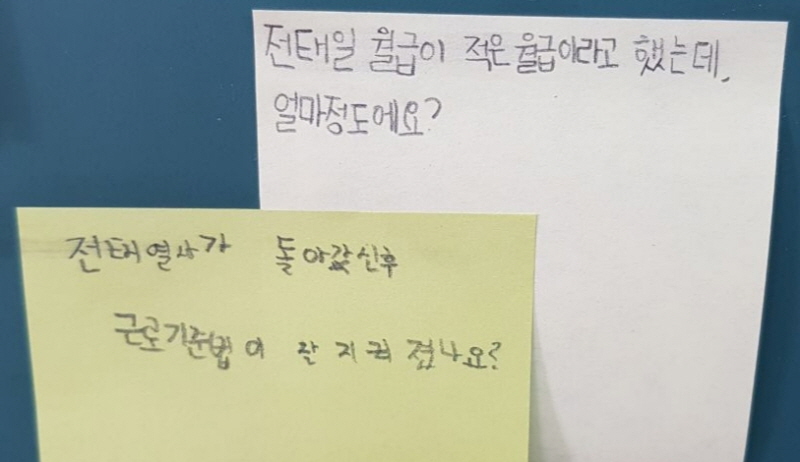 전태일 월급이 적은 월급이라고 했는데,
얼마정도에요?
전태열사가 돌아갔신후
근로기준법이 잘 지켜 졌나요?